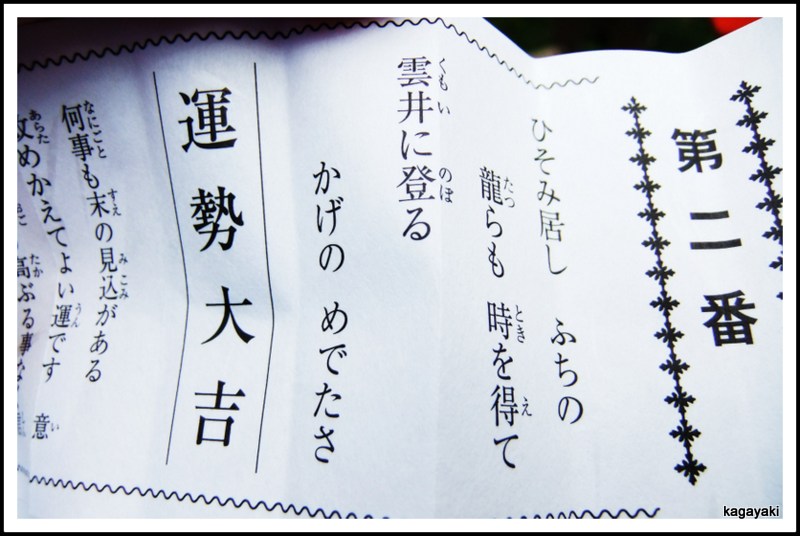 第二番
ひそみ居し ふちの
龍らも 時を得て
雲井に登る
かげの めでたさ
運勢大吉
何事も末の見込がある
改めかえてよい運です
高ぶる事な
意
kagayaki